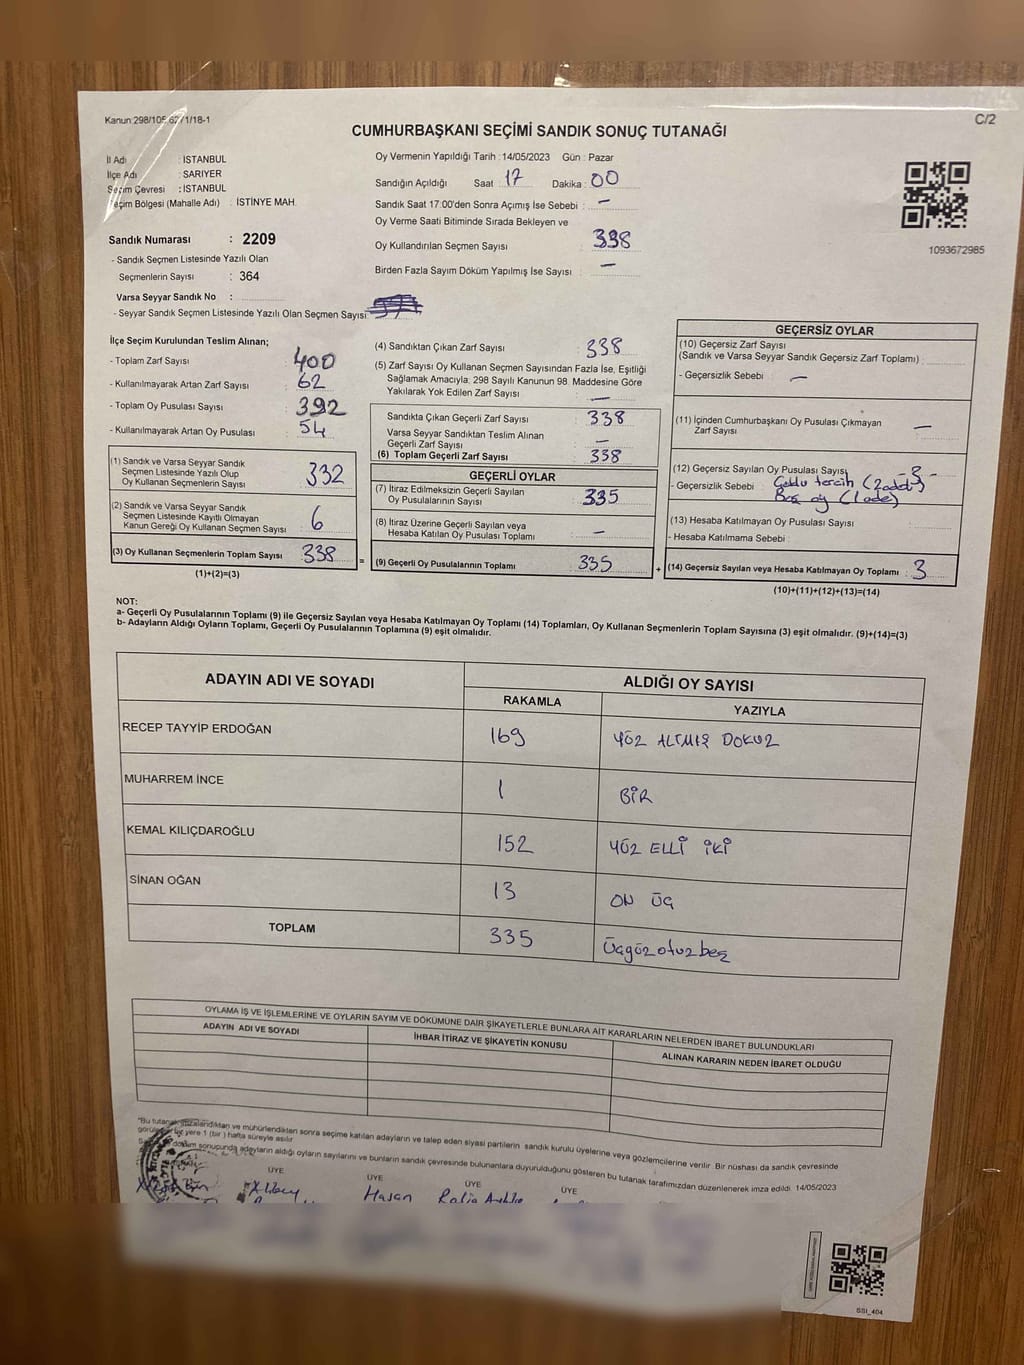 Kanun:298/105,62/1/18-1
C/2
CUMHURBAŞKANI SEÇİMİ SANDIK SONUÇ TUTANAĞI
İl Adı : İSTANBUL
İlçe Adı : SARIYER
Seçim Çevresi : İSTANBUL
Seçim Bölgesi (Mahalle Adı) : İSTİNYE MAH.
Sandık Numarası : 2209
- Sandık Seçmen Listesinde Yazılı Olan
Seçmenlerin Sayısı : 364
Varsa Seyyar Sandık No :
- Seyyar Sandık Seçmen Listesinde Yazılı Olan Seçmen Sayısı:
Oy Vermenin Yapıldığı Tarih :14/05/2023 Gün : Pazar
Sandığın Açıldığı Saat : 17 Dakika : 00
Sandık Saat 17:00'den Sonra Açımış İse Sebebi : —
Oy Verme Saati Bitiminde Sırada Bekleyen ve
Oy Kullandırılan Seçmen Sayısı : 338
Birden Fazla Sayım Döküm Yapılmış İse Sayısı : —
1093672985
İlçe Seçim Kurulundan Teslim Alınan;
- Toplam Zarf Sayısı : 400
- Kullanılmayarak Artan Zarf Sayısı : 62
- Toplam Oy Pusulası Sayısı : 392
- Kullanılmayarak Artan Oy Pusulası : 54
(1) Sandık ve Varsa Seyyar Sandık
Seçmen Listesinde Yazılı Olup
Oy Kullanan Seçmenlerin Sayısı : 332
(2) Sandık ve Varsa Seyyar Sandık
Seçmen Listesinde Kayıtlı Olmayan
Kanun Gereği Oy Kullanan Seçmen Sayısı : 6
(3) Oy Kullanan Seçmenlerin Toplam Sayısı : 338
(1)+(2)=(3)
=
(4) Sandıktan Çıkan Zarf Sayısı : 338
(5) Zarf Sayısı Oy Kullanan Seçmen Sayısından Fazla İse, Eşitliği
Sağlamak Amacıyla; 298 Sayılı Kanunun 98. Maddesine Göre
Yakılarak Yok Edilen Zarf Sayısı : —
Sandıkta Çıkan Geçerli Zarf Sayısı : 338
Varsa Seyyar Sandıktan Teslim Alınan
Geçerli Zarf Sayısı : —
(6) Toplam Geçerli Zarf Sayısı : 338
GEÇERLİ OYLAR
(7) İtiraz Edilmeksizin Geçerli Sayılan
Oy Pusulalarının Sayısı : 335
(8) İtiraz Üzerine Geçerli Sayılan veya
Hesaba Katılan Oy Pusulası Toplamı : —
(9) Geçerli Oy Pusulalarının Toplamı : 335
+
GEÇERSİZ OYLAR
(10) Geçersiz Zarf Sayısı
(Sandık ve Varsa Seyyar Sandık Geçersiz Zarf Toplamı) :
- Geçersizlik Sebebi : —
(11) İçinden Cumhurbaşkanı Oy Pusulası Çıkmayan
Zarf Sayısı : —
(12) Geçersiz Sayılan Oy Pusulası Sayısı : 3 -
- Geçersizlik Sebebi : Çoklu tercih (2 adet)
Boş oy (1 adet)
(13) Hesaba Katılmayan Oy Pusulası Sayısı :
- Hesaba Katılmama Sebebi :
(14) Geçersiz Sayılan veya Hesaba Katılmayan Oy Toplamı : 3
(10)+(11)+(12)+(13)=(14)
NOT:
a- Geçerli Oy Pusulalarının Toplamı (9) ile Geçersiz Sayılan veya Hesaba Katılmayan Oy Toplamı (14) Toplamları, Oy Kullanan Seçmenlerin Toplam Sayısına (3) eşit olmalıdır. (9)+(14)=(3)
b- Adayların Aldığı Oyların Toplamı, Geçerli Oy Pusulalarının Toplamına (9) eşit olmalıdır.
ADAYIN ADI VE SOYADI
ALDIĞI OY SAYISI
RAKAMLA YAZIYLA
RECEP TAYYİP ERDOĞAN 169 YÜZ ALTMIŞ DOKUZ
MUHARREM İNCE 1 BİR
KEMAL KILIÇDAROĞLU 152 YÜZ ELLİ İKİ
SİNAN OĞAN 13 ON ÜÇ
TOPLAM 335 Üçyüzotuzbeş
OYLAMA İŞ VE İŞLEMLERİNE VE OYLARIN SAYIM VE DÖKÜMÜNE DAİR ŞİKAYETLERLE BUNLARA AİT KARARLARIN NELERDEN İBARET BULUNDUKLARI
ADAYIN ADI VE SOYADI İHBAR İTİRAZ VE ŞİKAYETİN KONUSU ALINAN KARARIN NEDEN İBARET OLDUĞU
"Bu tutanak imzalandıktan ve mühürlendikten sonra seçime katılan adayların ve talep eden siyasi partilerin sandık kurulu üyelerine veya gözlemcilerine verilir. Bir nüshası da sandık çevresinde
görülen bir yere 1 (bir) hafta süreyle asılır
döküm sonucunda adayların aldığı oyların sayılarını ve bunların sandık çevresinde bulunanlara duyurulduğunu gösteren bu tutanak tarafımızdan düzenlenerek imza edildi. 14/05/2023
ÜYE ÜYE ÜYE ÜYE
Hasan
SSI_404